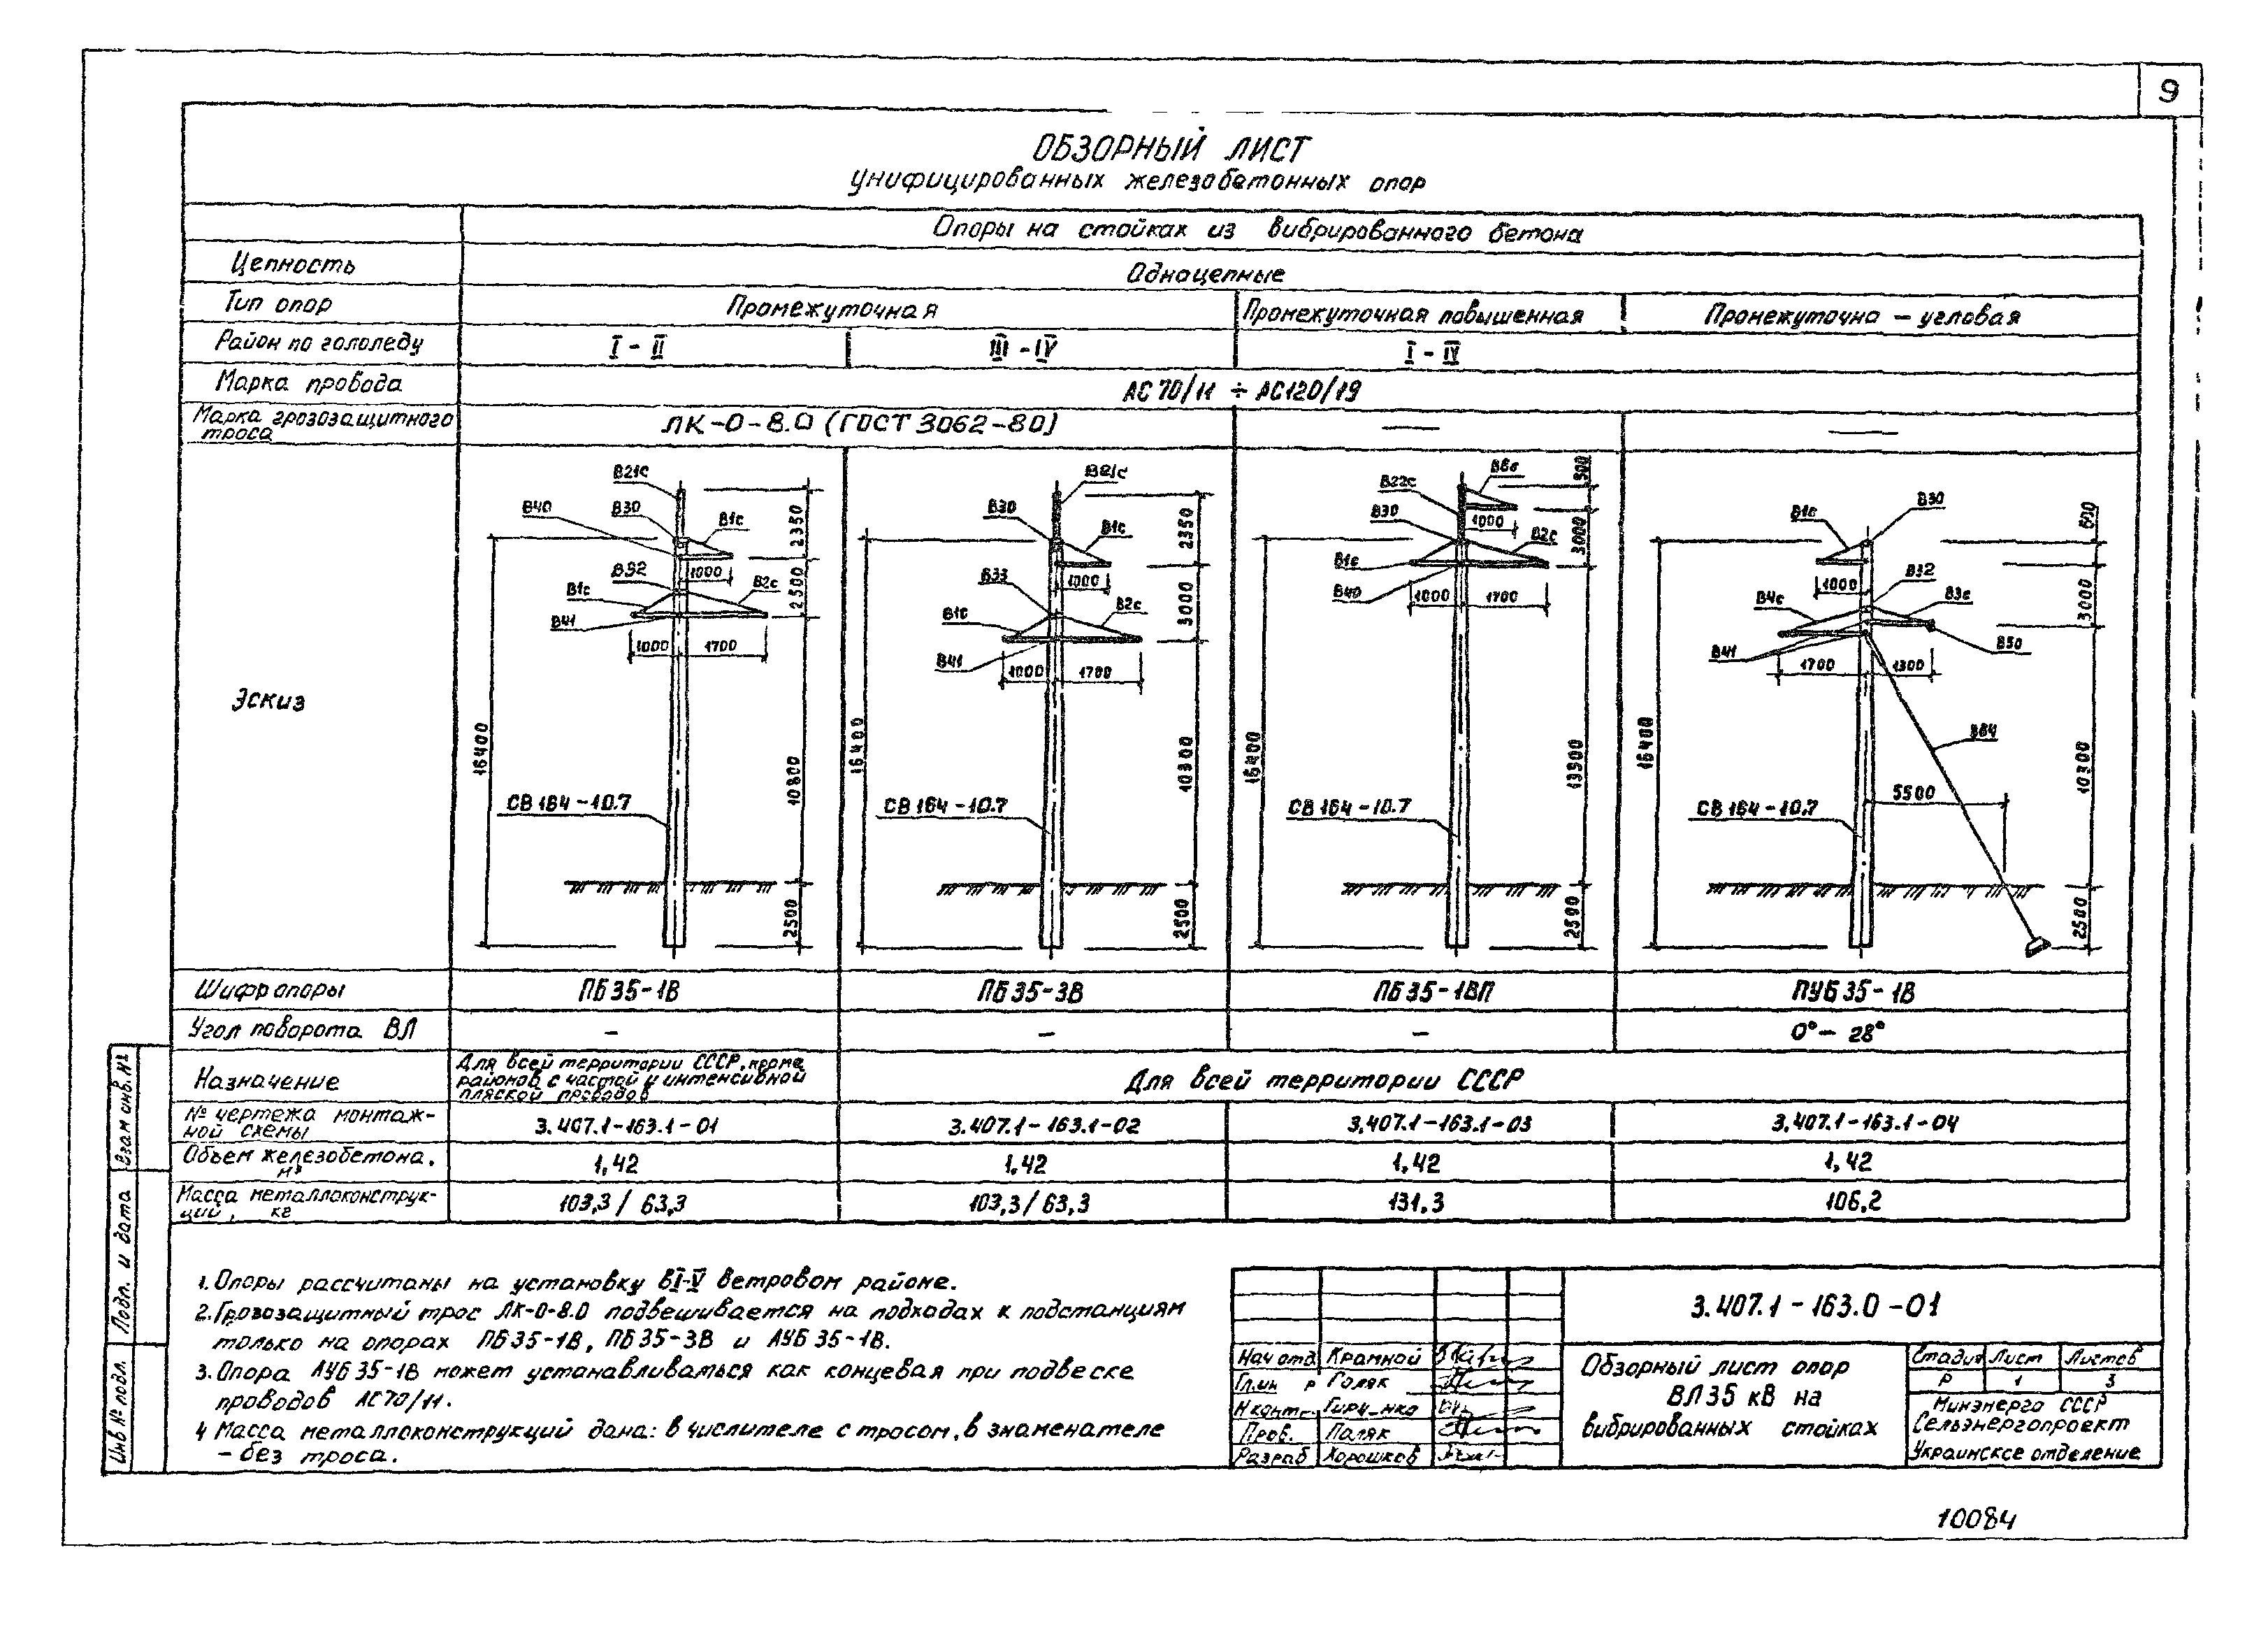 9
ОБЗОРНЫЙ ЛИСТ
унифицированных железобетонных опор
Опоры на стойках из вибрированного бетона
Цепность Одноцепные
Тип опор Промежуточная Промежуточная повышенная Промежуточно - угловая
Район по гололеду I - II III - IV I - IV
Марка провода АС 70/11 ÷ АС120/19
Марка грозозащитного
троса ЛК-0-8.0 (ГОСТ 3062-80) — —
Эскиз
В21с
В40 В30 В1с
2350
1000
В32
В1с В2с
2500
В41
1000 1700
16400
10800
СВ 164-10.7
2500
В21с
В30 В1с
2350
1000
В33
3000
В1с В2с
В41
1000 1700
16400
10300
СВ 164-10.7
2500
В6с
500
В22с
В30
1000
3000
В2с
В1с
В40
1000 1700
16400
13900
СВ 164-10.7
2500
В30
В1с
1000
В32
В4с В3с
3000
В41 В50
1700 1300
16400
В64
10300
5500
СВ 164-10.7
2500
Шифр опоры ПБ35-1В ПБ35-3В ПБ35-1ВП ПУБ35-1В
Угол поворота ВЛ - - - 0°- 28°
Назначение Для всей территории СССР, кроме
районов с частой и интенсивной
пляской проводов
Для всей территории СССР
№ чертежа монтаж-
ной схемы 3.407.1-163.1-01 3.407.1-163.1-02 3.407.1-163.1-03 3.407.1-163.1-04
Объем железобетона,
м³ 1,42 1,42 1,42 1,42
Масса металлоконструк-
ций, кг 103,3 / 63,3 103,3 / 63,3 131,3 106,2
1. Опоры рассчитаны на установку в I-V ветровом районе.
2. Грозозащитный трос ЛК-0-8.0 подвешивается на подходах к подстанциям
только на опорах ПБ35-1В, ПБ35-3В и АУБ35-1В.
3. Опора АУБ35-1В может устанавливаться как концевая при подвеске
проводов АС70/11.
4 Масса металлоконструкций дана: в числителе с тросом, в знаменателе
- без троса.
Взам инв. №
Подп. и дата
Инв № подл.
3.407.1-163.0-01
Нач отд. Крамной
Голяк
Н контр.
Пров.
Разраб Хорошков
Обзорный лист опор
ВЛ 35 кВ на
вибрированных стойках
Стадия Лист Листов
Р 1 3
Минэнерго СССР
Сельэнергопроект
Украинское отделение
10084